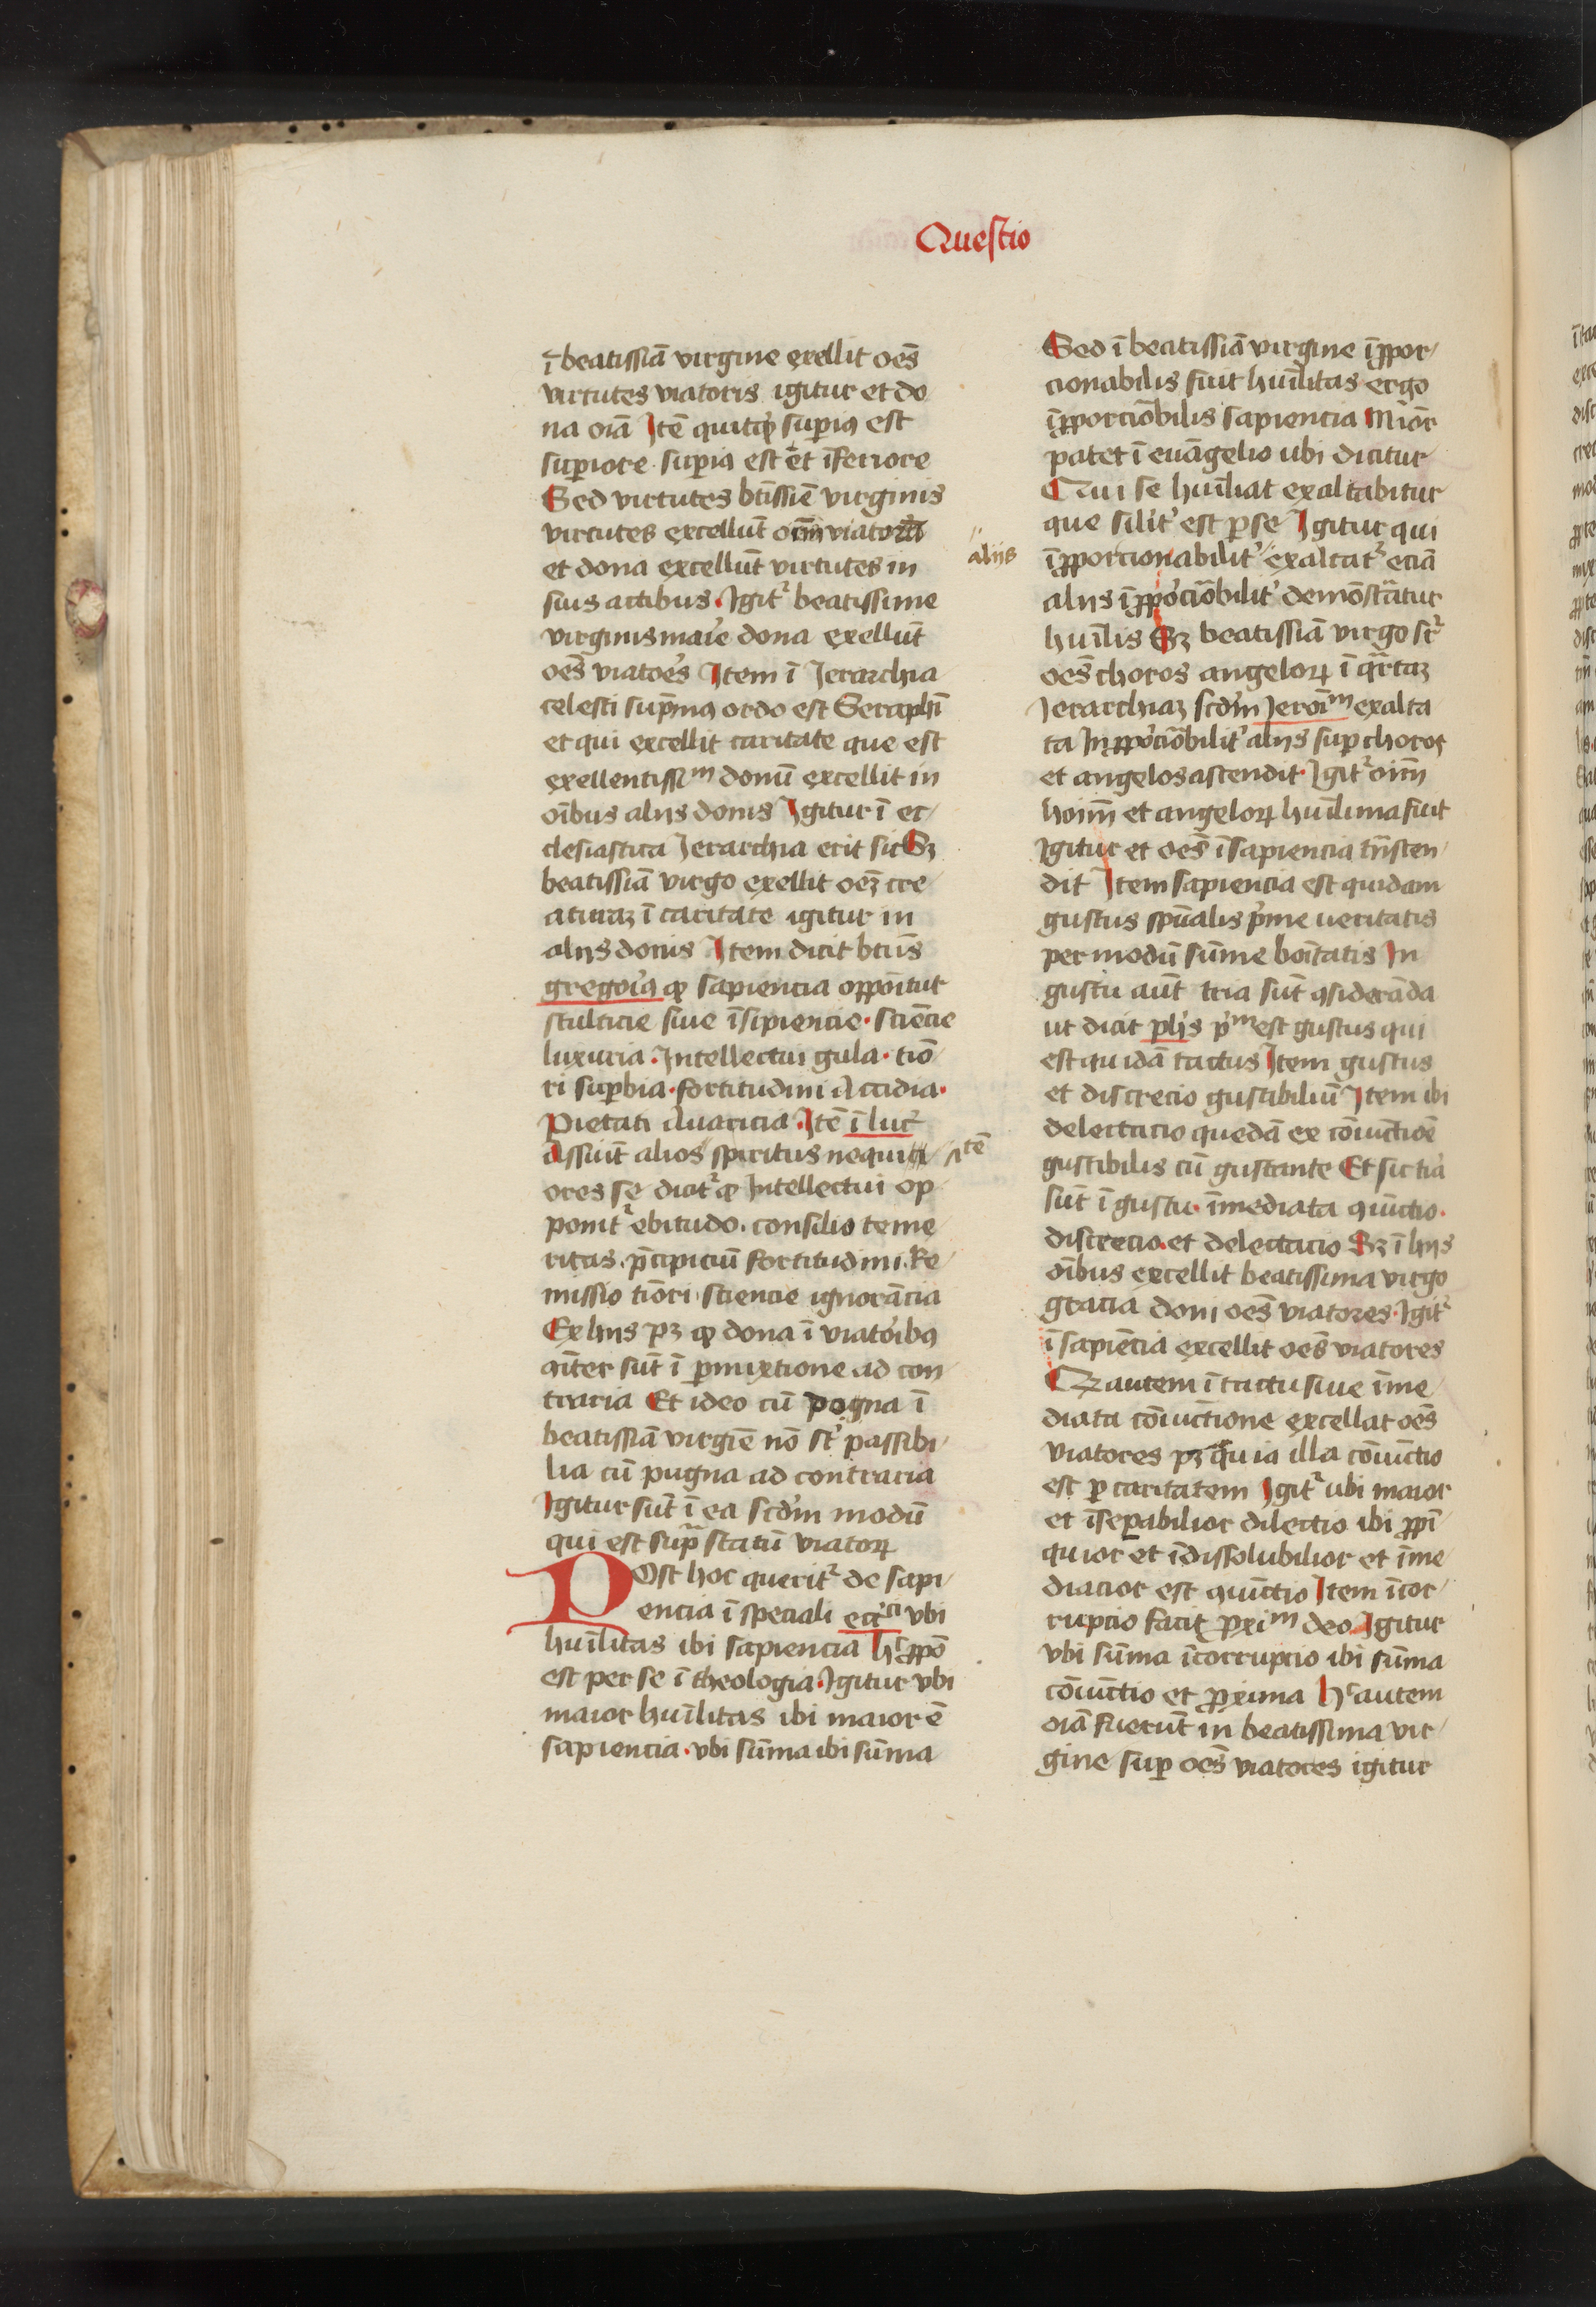 Questio
ī beatissiā virgine exellit oēs
virtutes viatoris igitur et do
na oīa Itē quitqͥd superiꝯ est
superiore superiꝯ est et īferiore
Sed virtutes btissīe virginis
virtutes excellūt oīm viatorū
et dona excellūt virtutes in
suis actibus. Igitᷣ beatissime
virginis marie dona exellūt
oēs viatoēs Item ī Jerarchia
celesti supremꝯ ordo est Seraphī
et qui excellit caritate que est
exellentissiᵐ donū excellit in
oībus alijs donis Igitur ī ec
clesiastica Jerarchia erit sic Sꝫ
beatissiā virgo exellit oēꝫ cre
aturaꝫ ī caritate igitur in
alijs donis Item dicit btūs
gregoiꝯ ꝙ sapiencia opponitur
stulticie siue īsipiencie. sciēcie
luxuria. Intellectui gula. tiō
ri suꝑbia. fortitudini Accidia.
Pietati Auaricia. Itē ī luc̄
Assūit alios spiritus nequiti itē
ores se dicitᷣ ꝙ Intellectui op
ponitᷣ ebitudo. consilio teme
ritas. p̄cipiciū fortitudini. Re
missio tiōri sciencie ignorācia
Ex hijs pꝫ ꝙ dona ī viatoribꝯ
ꝯiter sūt ī ꝑmixtione ad con
traria Et ideo cū pogna ī
beatissiā virgīe nō st̄ passibi
lia cū pugna ad contraria
Igitur sūt ī ea scdm̄ modū
qui est supᷓ statū viatorꝝ
Post hoc queritᷣ de sapi
encia ī speciali eccͨi vbi
huīlitas ibi sapiencia hͨ ꝓpō
est per se ī theologia. Igitur vbi
maior huīlitas ibi maior ē
sapiencia. vbi sūma ibi sūma
alijs
Sed ī beatissiā virgine īꝓpor
cionabilis fuit huīlitas ergo
īꝓporciōbilis sapiencia Mīor
patet ī euāgelio ubi dicitur
Qui se huīliat exaltabitur
que silitᷣ est ꝑ se Igitur qui
īꝓporcionabilitᷣ exaltatᷣ eciā
alijs īꝓporciōbilitᷣ demōstratur
huīlis Sꝫ beatissiā virgo sᷣ
oēs choros angelorꝝ ī qᷓrtaꝫ
Jerarchiaꝫ scdm̄ Jeroīᵐ exalta
ta Inꝓporciōbilitᷣ alijs suꝑ choros
et angelos ascendit. Igitᷣ oīm
hoīm et angelorꝝ huīlima fuit
Igitur et oēs ī sapiencia trāscen
dit Item sapiencia est quidam
gustus spūalis pͥme ueritatis
per modū sūme boītatis In
gustu aūt tria sūt ꝯsiderāda
ut dicit phs pͥᵐ est gustus qui
est quidā tactus Item gustus
et discrecio gustibiliū Item ibi
delectacio quedā ex cōiuctiōe
gustibilis cū gustante Et sic tria
sūt ī gustu. īmediata ꝯiūctio.
discrecio. et delectacio Sꝫ ī hijs
oībus excellit beatissima virgo
gracia doni oēs viatores. Igitᷣ
ī sapiēcia excellit oēs viatores
Qꝫ autem ī tactu siue īme
diata cōiūctione excellat oēs
viatores pꝫ quia illa cōiūctio
est ꝑ caritatem Igitᷣ ubi maior
et īseꝑabilior dilectio ibi ꝓpī
quior et īdissolubilior et īme
diacior est ꝯiūctio Item īcor
rupcio facit ꝓxiᵐ deo Igitur
vbi sūma īcorrupcio ibi sūma
cōiūctio et ꝓxima hͨ autem
oīa fuerūt in beatissima vir
gine suꝑ oēs viatores igitur